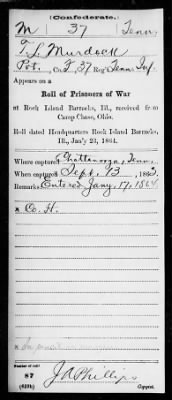 (Confederate.)
M 37 Tenn.
T. L. Murdock
Pvt., Co. F, 37 Reg't Tenn. Inf.
Appears on a
Roll of Prisoners of War
at Rock Island Barracks, Ill., received from
Camp Chase, Ohio.
Roll dated Headquarters Rock Island Barracks,
Ill., Jan'y 23, 1864.
Where captured Chattanooga, Tenn.
When captured Sept. 13, 1863.
Remarks: Entered Jany. 17, 1864
Number of roll:
87
J A Phillips
Copyist.